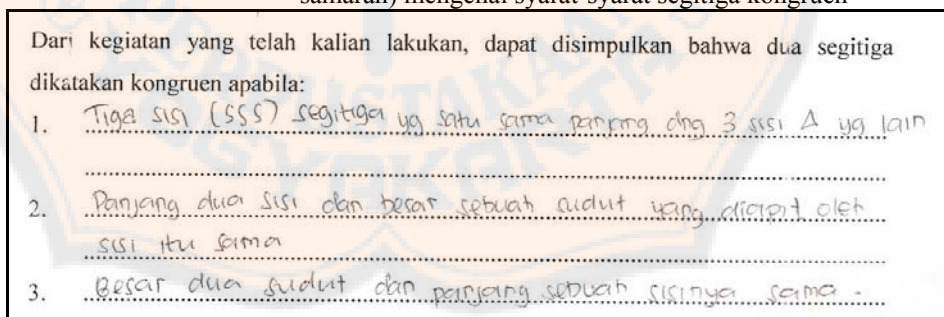 samaran) mengenai syarat-syarat segitiga kongruen
Dari kegiatan yang telah kalian lakukan, dapat disimpulkan bahwa dua segitiga
dikatakan kongruen apabila:
1. Tiga sisi (SSS) segitiga yg satu sama panjang dng 3 sisi Δ yg lain
2. Panjang dua sisi dan besar sebuah sudut yang diapit oleh
sisi itu sama
3. Besar dua sudut dan panjang sebuah sisinya sama.